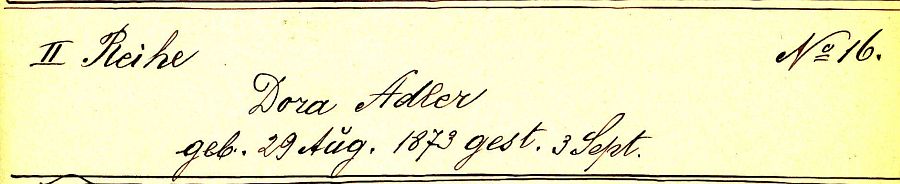 II Reihe № 16.
Dora Adler
geb. 29 Aŭg. 1873 gest. 3 Sept.